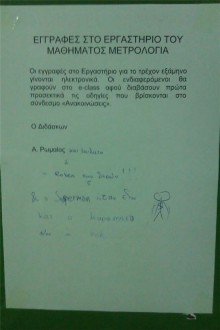 ΕΓΓΡΑΦΕΣ ΣΤΟ ΕΡΓΑΣΤΗΡΙΟ ΤΟΥ
ΜΑΘΗΜΑΤΟΣ ΜΕΤΡΟΛΟΓΙΑ
Οι εγγραφές στο Εργαστήριο για το τρέχον εξάμηνο
γίνονται ηλεκτρονικά. Οι ενδιαφερόμενοι θα
γραφούν στο e-class αφού διαβάσουν πρώτα
προσεκτικά τις οδηγίες που βρίσκονται στο
σύνδεσμο «Ανακοινώσεις».
Ο Διδάσκων
Α. Ρωμαίος και
!!!
Superman
και ο
και ο